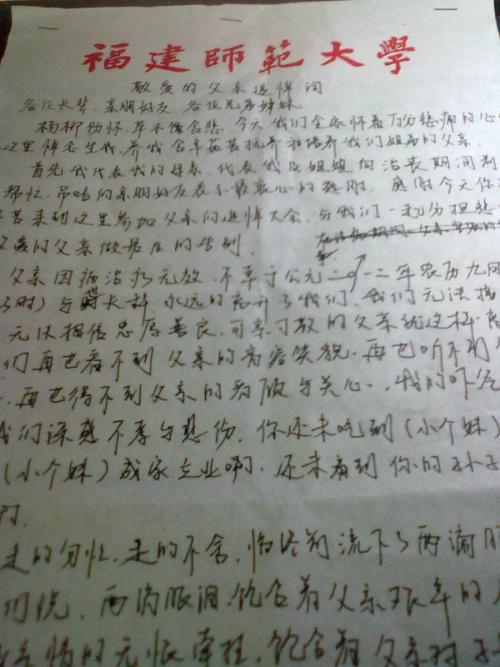 福建師範大學
敬爱的父亲追悼词
各位长辈、亲朋好友、各位兄弟姊妹
杨柳伤怀、草木含悲、今天我们全家怀着万分悲痛的心
这里悼念生我、养我含辛茹苦抚养和培养我们姐弟的父亲
首先我代表我的母亲、代表我及姐姐向治丧期间
帮忙、吊唁的亲朋好友表示最衷心的感谢。感谢今天你
来到这里参加父亲的追悼大会、与我们一起分担悲
的父亲做最后的告别
父亲因病治疗无效、不幸于公元二〇一二年农历九月
时)与世长辞 永远的离开了我们、我们无法
无法相信忠厚善良、可亲可敬的父亲就这样
们再也看不到父亲的音容笑貌、再也听不到
再也得不到父亲的与关心、我的
我们深感不孝与悲伤、你还未吃到(小个妹)
(小个妹)成家立业啊、还未看到你的孙子
走的匆忙、走的不舍、临终前流下了两滴眼
两滴眼泪、饱含着父亲艰辛的
情的无限牵挂、饱含着父亲对